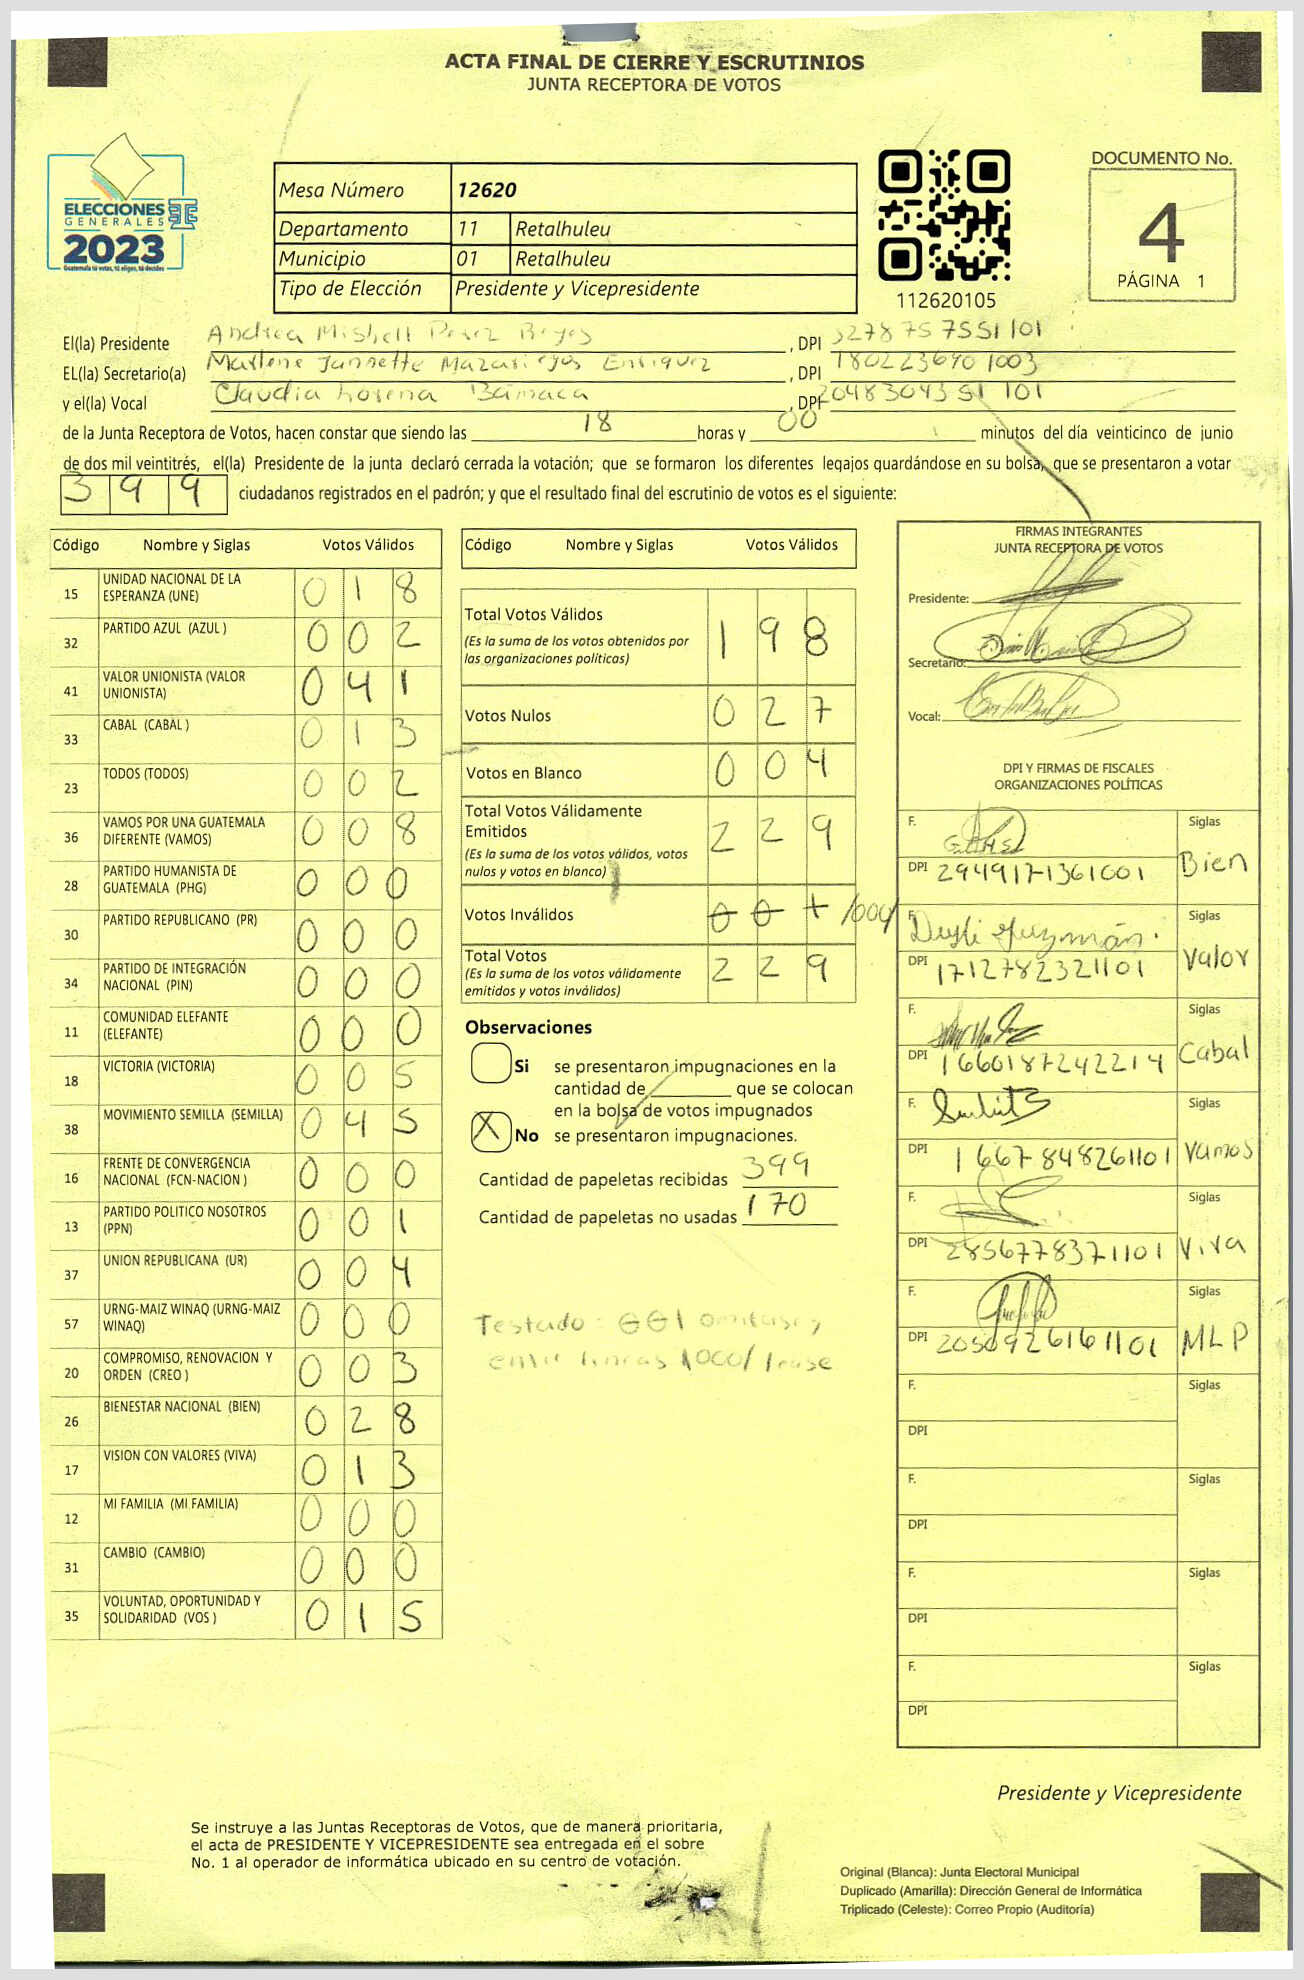 ACTA FINAL DE CIERRE Y ESCRUTINIOS
JUNTA RECEPTORA DE VOTOS
ELECCIONES
GENERALES
2023
Guatemala tú votas, tú eliges, tú decides
Mesa Número 12620
Departamento 11 Retalhuleu
Municipio 01 Retalhuleu
Tipo de Elección Presidente y Vicepresidente
112620105
DOCUMENTO No.
4
PÁGINA 1
El(la) Presidente Andrea Mishell Perez Reyes, DPI 3278757551101
EL(la) Secretario(a) Marlene Jannette Mazariegos Enriquez, DPI 1802236901003
y el(la) Vocal Claudia Lorena Bámaca, DPI 2048304351101
de la Junta Receptora de Votos, hacen constar que siendo las 18 horas y 00 minutos del día veinticinco de junio
de dos mil veintitrés, el(la) Presidente de la junta declaró cerrada la votación; que se formaron los diferentes legajos guardándose en su bolsa, que se presentaron a votar
399 ciudadanos registrados en el padrón; y que el resultado final del escrutinio de votos es el siguiente:
Código Nombre y Siglas Votos Válidos
15 UNIDAD NACIONAL DE LA ESPERANZA (UNE) 018
32 PARTIDO AZUL (AZUL ) 002
41 VALOR UNIONISTA (VALOR UNIONISTA) 041
33 CABAL (CABAL ) 013
23 TODOS (TODOS) 002
36 VAMOS POR UNA GUATEMALA DIFERENTE (VAMOS) 008
28 PARTIDO HUMANISTA DE GUATEMALA (PHG) 000
30 PARTIDO REPUBLICANO (PR) 000
34 PARTIDO DE INTEGRACIÓN NACIONAL (PIN) 000
11 COMUNIDAD ELEFANTE (ELEFANTE) 000
18 VICTORIA (VICTORIA) 005
38 MOVIMIENTO SEMILLA (SEMILLA) 045
16 FRENTE DE CONVERGENCIA NACIONAL (FCN-NACION ) 000
13 PARTIDO POLITICO NOSOTROS (PPN) 001
37 UNION REPUBLICANA (UR) 004
57 URNG-MAIZ WINAQ (URNG-MAIZ WINAQ) 000
20 COMPROMISO, RENOVACION Y ORDEN (CREO ) 003
26 BIENESTAR NACIONAL (BIEN) 028
17 VISION CON VALORES (VIVA) 013
12 MI FAMILIA (MI FAMILIA) 000
31 CAMBIO (CAMBIO) 000
35 VOLUNTAD, OPORTUNIDAD Y SOLIDARIDAD (VOS ) 015
Código Nombre y Siglas Votos Válidos
Total Votos Válidos 198
(Es la suma de los votos obtenidos por
las organizaciones políticas)
Votos Nulos 027
Votos en Blanco 004
Total Votos Válidamente
Emitidos 229
(Es la suma de los votos válidos, votos
nulos y votos en blanco)
Votos Inválidos 001 /000/
Total Votos 229
(Es la suma de los votos válidamente
emitidos y votos inválidos)
Observaciones
Si se presentaron impugnaciones en la
cantidad de que se colocan
en la bolsa de votos impugnados
X No se presentaron impugnaciones.
Cantidad de papeletas recibidas 399
Cantidad de papeletas no usadas 170
Testado: 001 omitase y
entre lineas /000/ lease
FIRMAS INTEGRANTES
JUNTA RECEPTORA DE VOTOS
Presidente:
Secretario:
Vocal:
DPI Y FIRMAS DE FISCALES
ORGANIZACIONES POLÍTICAS
F. Siglas
DPI 2949171361001 Bien
F. Deysi Guzmán. Siglas
DPI 1712782321101 Valor
F. Siglas
DPI 1660187242214 Cabal
F. Siglas
DPI 1667848261101 Vamos
F. Siglas
DPI 2856778371101 Viva
F. Siglas
DPI 2050926161101 MLP
F. Siglas
DPI
F. Siglas
DPI
F. Siglas
DPI
F. Siglas
DPI
Presidente y Vicepresidente
Se instruye a las Juntas Receptoras de Votos, que de manera prioritaria,
el acta de PRESIDENTE Y VICEPRESIDENTE sea entregada en el sobre
No. 1 al operador de informática ubicado en su centro de votación.
Original (Blanca): Junta Electoral Municipal
Duplicado (Amarilla): Dirección General de Informática
Triplicado (Celeste): Correo Propio (Auditoría)